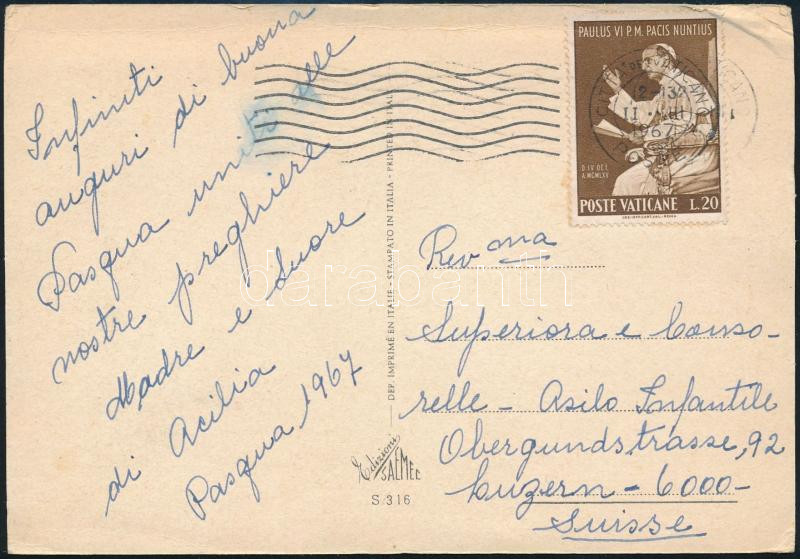 Infiniti
auguri di buona
Pasqua uniti alle
nostre preghiere
Madre e Suore
di Acilia
Pasqua 1967
DEP. IMPRIMÉ EN ITALIE - STAMPATO IN ITALIA - PRINTED IN ITALY
Edizioni
SAEMEC
S 316
PAULUS VI P.M. PACIS NUNTIUS
D. IV OCT.
A. MCMLXV
POSTE VATICANE L. 20
12-13
1967
Rev ma
Superiora e Conso-
relle - Asilo Infantile
Obergundstrasse, 92
Luzern - 6000-
Suisse
darabanth